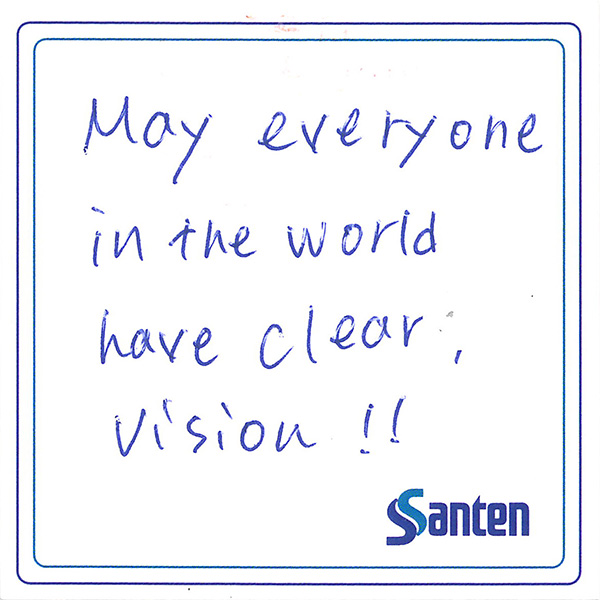 May everyone
in the world
have clear,
vision !!
Santen